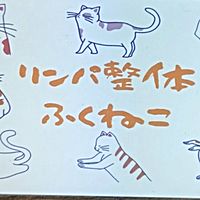 リンパ整体
ふくねこ